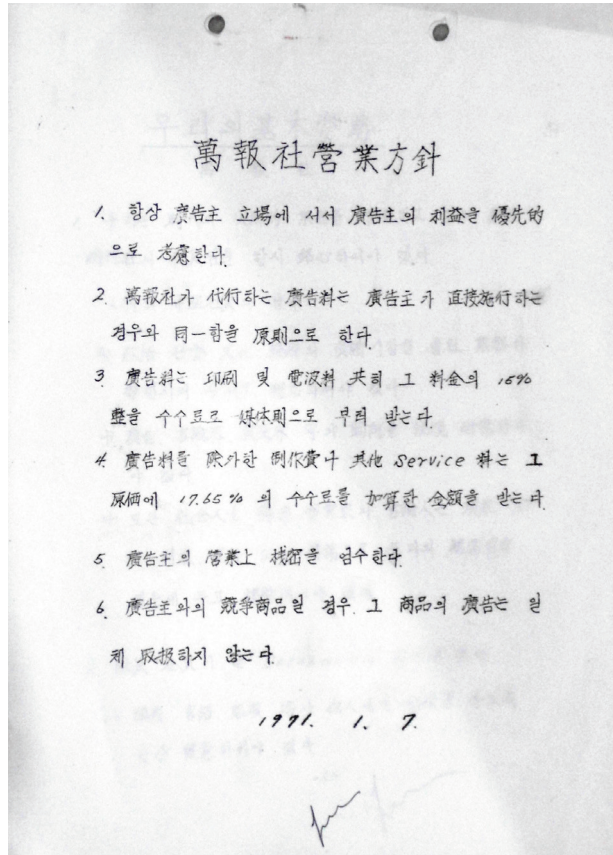 萬報社營業方針
1. 항상 廣告主 立場에 서서 廣告主의 利益을 優先的
으로 考慮한다.
2. 萬報社가 代行하는 廣告料는 廣告主가 直接施行하는
경우와 同一함을 原則으로 한다.
3. 廣告料는 印刷 및 電波料 共히 그 料金의 15%
整을 수수료로 媒体側으로 부터 받는다.
4. 廣告料를 除外한 制作費나 其他 Service 料는 그
原価에 17.65% 의 수수료를 加算한 金額을 받는다.
5. 廣告主의 營業上 机密을 엄수한다.
6. 廣告主와의 競爭商品일 경우. 그 商品의 廣告는 일
체 取扱하지 않는다.
1971. 1. 7.